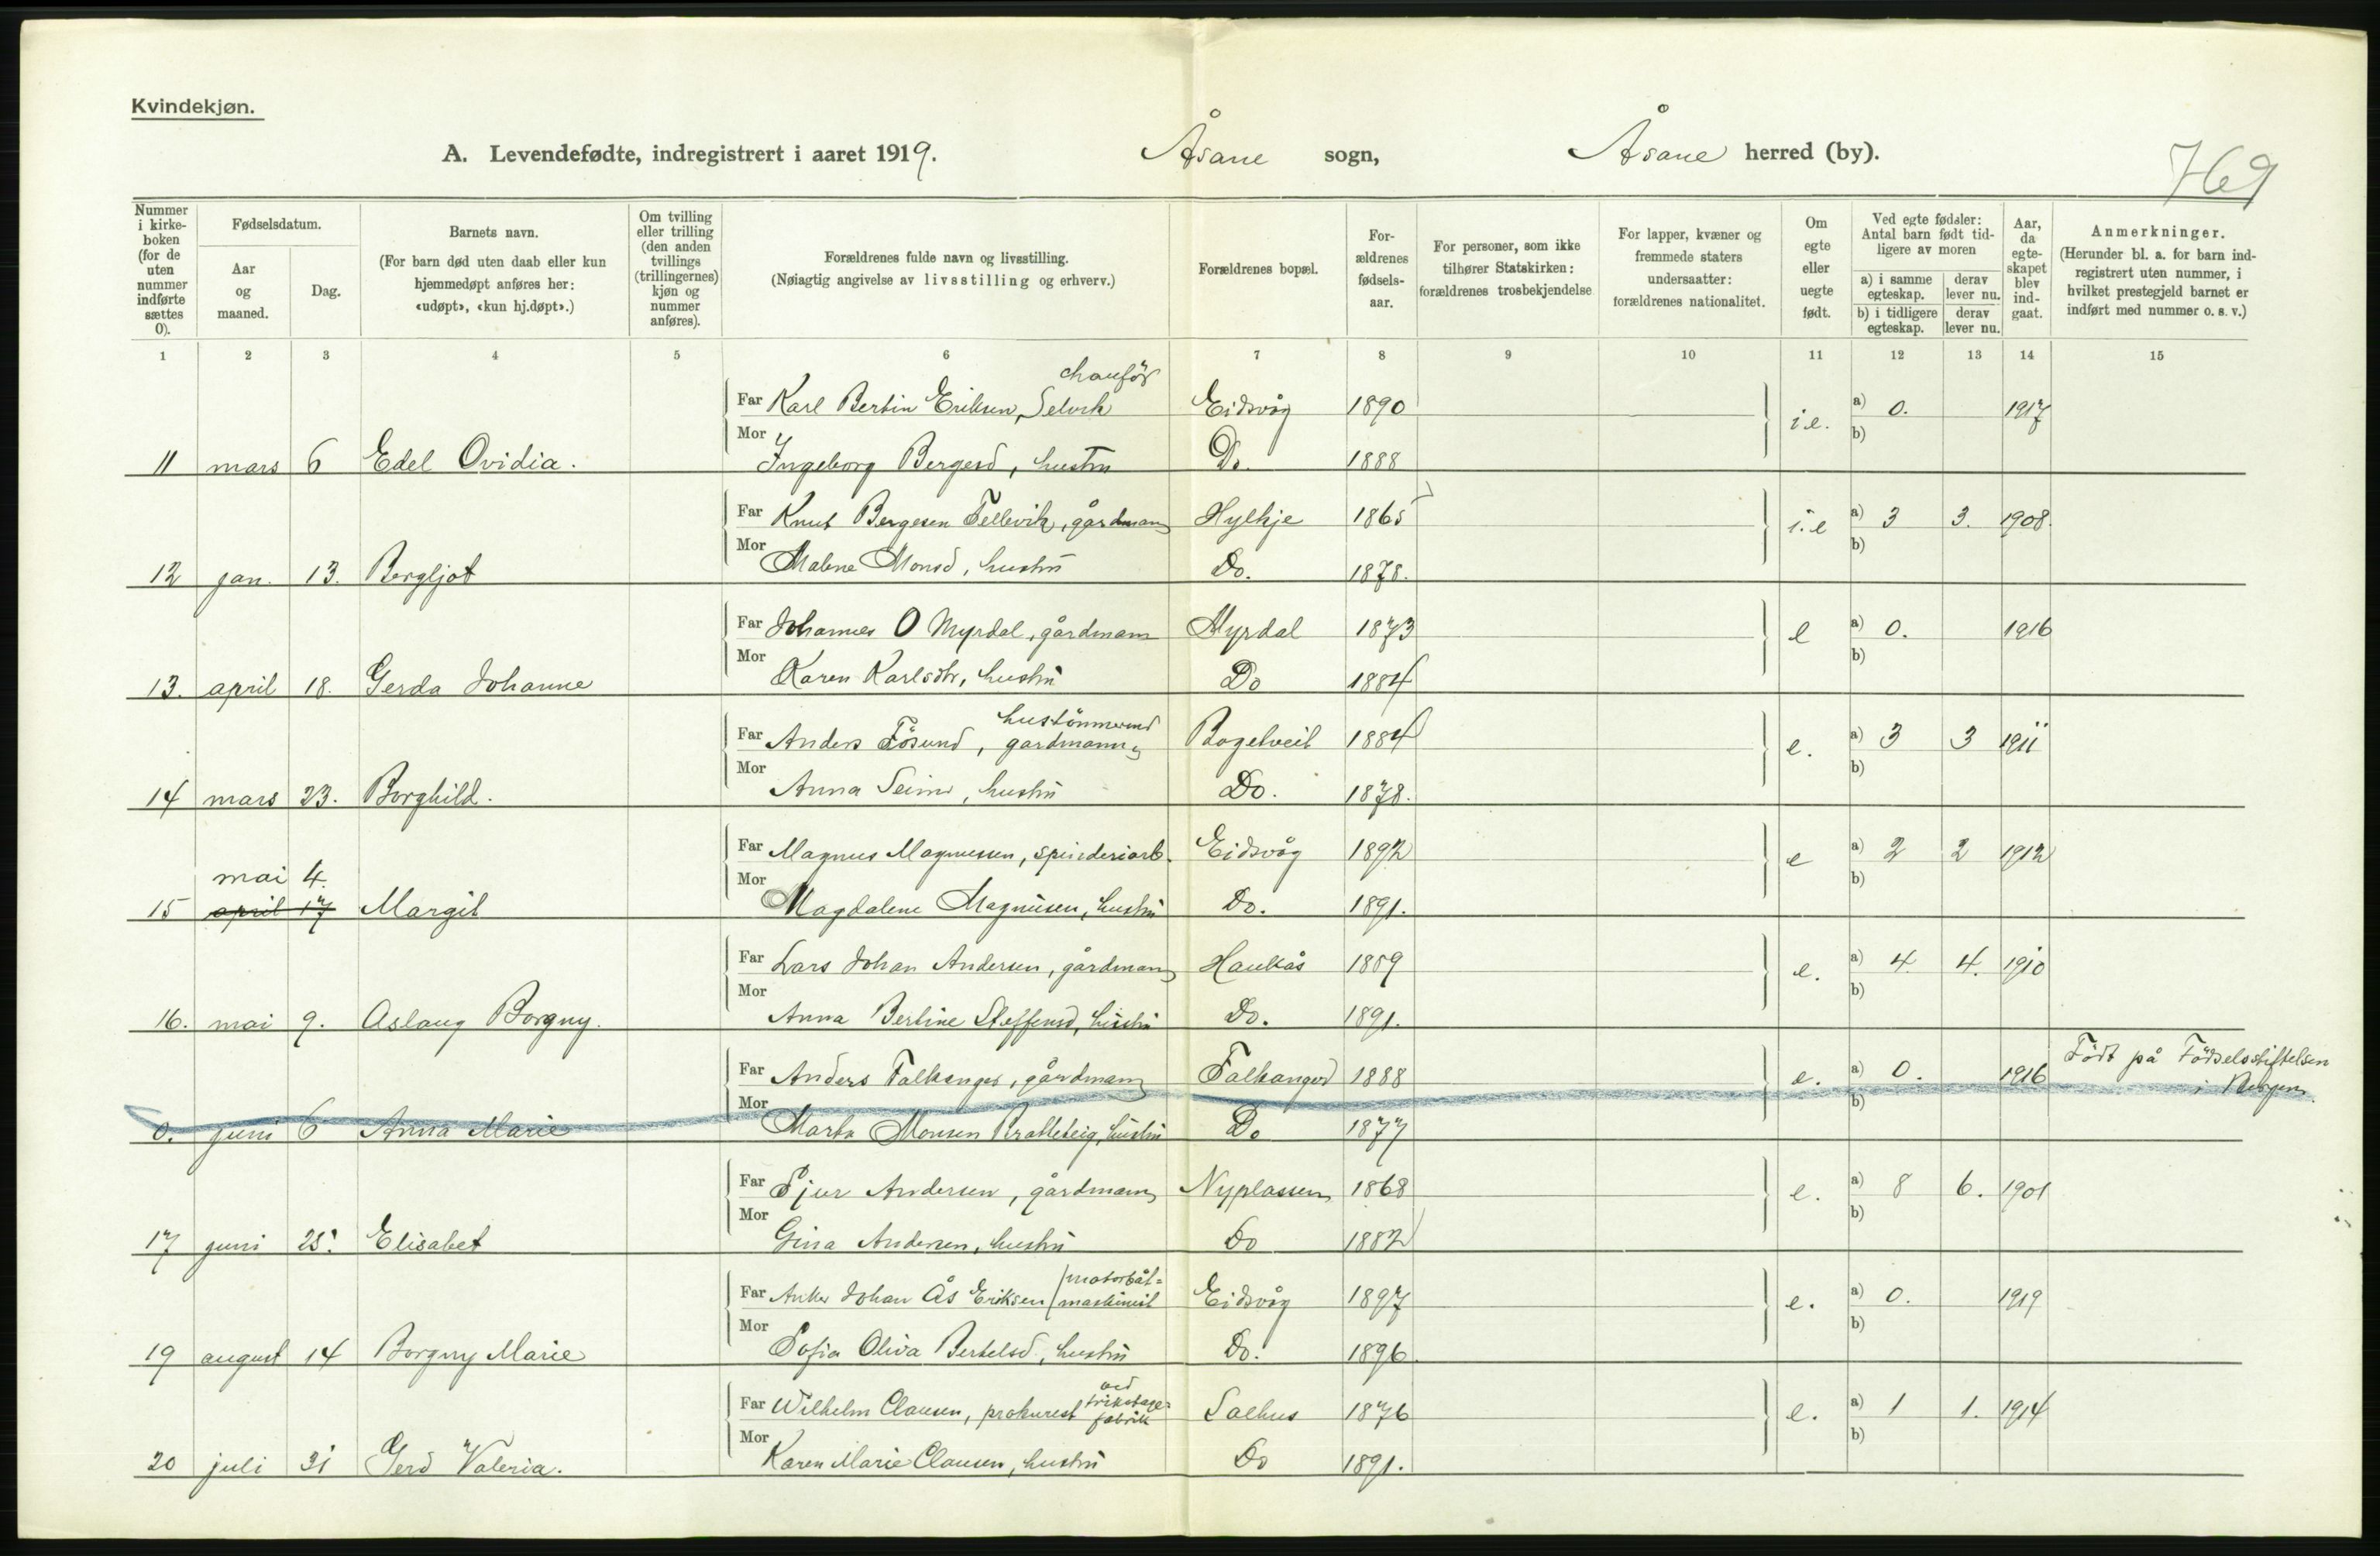 Kvindekjøn.
A. Levendefødte, indregistrert i aaret 1919. Åsane sogn, Åsane herred (by).
769
Nummer i kirke-boken (for de uten nummer indførte sættes 0).
Fødselsdatum.
Aar og maaned.
Dag.
Barnets navn.
(For barn død uten daab eller kun hjemmedøpt anføres her: «udøpt», «kun hj.døpt».)
Om tvilling eller trilling (den anden tvillings (trillingernes) kjøn og nummer anføres).
Forældrenes fulde navn og livsstilling.
(Nøiagtig angivelse av livsstilling og erhverv.)
Forældrenes bopæl.
For-ældrenes fødsels-aar.
For personer, som ikke tilhører Statskirken: forældrenes trosbekjendelse
For lapper, kvæner og fremmede staters undersaatter: forældrenes nationalitet.
Om egte eller uegte født.
Ved egte fødsler: Antal barn født tid-ligere av moren
a) i samme egteskap.
derav lever nu.
b) i tidligere egteskap.
derav lever nu.
Aar, da egte-skapet blev ind-gaat.
Anmerkninger.
(Herunder bl. a. for barn ind-registrert uten nummer, i hvilket prestegjeld barnet er indført med nummer o. s. v.)
1 2 3 4 5 6 7 8 9 10 11 12 13 14 15
chauför
Far Karl Bertin Eriksen, Selvik Eidsvåg 1890 i.e. a) 0. 1917
b)
11 mars 6 Edel Ovidia. Mor Ingeborg Bergesd, hustru Do. 1888
Far Knut Bergesen Tellevik, gårdmann Hylkje 1865 i.e a) 3 3. 1908.
b)
12 jan. 13. Bergljot Mor Malene Monsd, hustru Do. 1878.
Far Johannes O Myrdal, gårdmann Myrdal 1873 e a) 0. 1916
b)
13. april 18. Gerda Johanne Mor Karen Karlsdtr, hustru Do 1884
hustömmermd
Far Anders Fösund, gardmann Bogetveit 1884 e. a) 3 3 1911
b)
14 mars 23. Borghild. Mor Anna Seim, hustru Do. 1878.
Far Magnus Magnussen, spinderiarb. Eidsvåg 1892 e a) 2 2 1912
b)
mai 4.
15 april 17 Margit Mor Magdalene Magnusen, hustru Do. 1891.
Far Lars Johan Andersen, gårdmann Haukås 1889 e. a) 4 4. 1910
b)
16. mai 9. Aslaug Borgny. Mor Anna Bertine Steffensd, hustru Do. 1891.
Far Anders Falkanger, gårdmann Falkanger 1888 e. a) 0. 1916 Födt på Födselsstiftelsen
b) i Bergen.
0. juni 6 Anna Marie Mor Marta Monsen Bratteteig, hustru Do 1877
Far Sjur Andersen, gårdmann Nyplassen 1868 e. a) 8 6. 1901
b)
17 juni 25. Elisabet Mor Gina Andersen, hustru Do 1882
motorbåt-
Far Anker Johan Ås Eriksen maskinist Eidsvåg 1897 e. a) 0. 1919
b)
19 august 14 Borgny Marie Mor Sofia Oliva Bertelsd., hustru Do. 1896.
ved
Far Wilhelm Clausen, prokurist trikotage-fabrik Salhus 1876 e. a) 1 1. 1914
b)
20 juli 31 Gerd Valeria. Mor Karen Marie Clausen, hustru Do 1891.